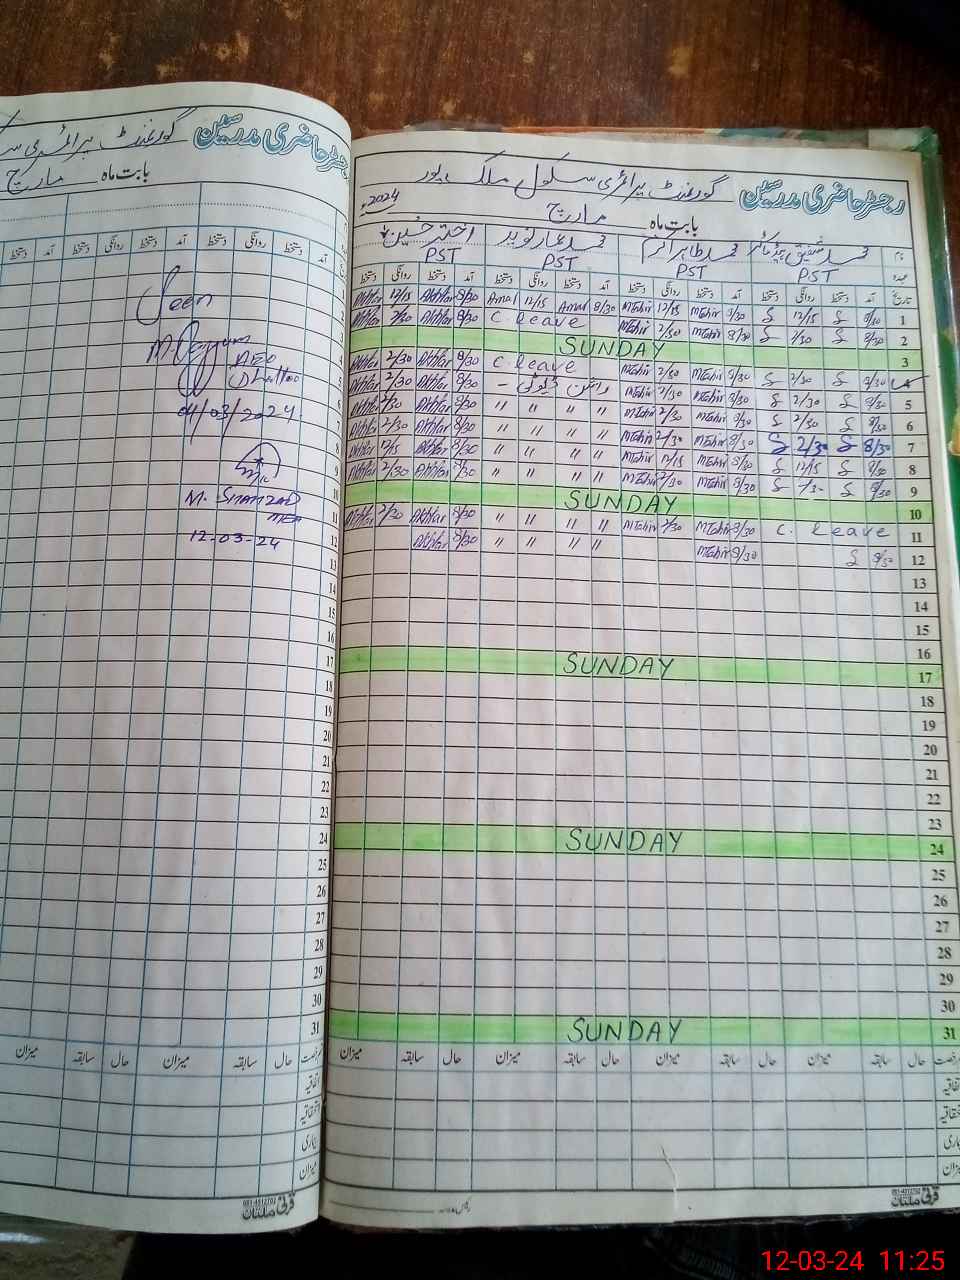 رجسٹر حاضری مدرسین گورنمنٹ پرائمری
بابت ماہ مارچ
دستخط آمد دستخط روانگی دستخط آمد دستخط روانگی دستخط
Seen
AEO
04/03/2024
M. SHAHZAD
MEA
12-03-24
1
4
5
6
7
8
9
10
11
12
13
14
15
16
17
18
19
20
21
22
23
24
25
26
27
28
29
30
31
حال سابقہ میزان حال سابقہ میزان
اتفاقیہ
استحقاقیہ
بیماری
میزان
061-4512702
قریشی ملتان
رجسٹر حاضری مدرسین گورنمنٹ پرائمری سکول ملک پور
بابت ماہ مارچ 2024
نام محمد شفیق محمد طاہر اکرم نوید اختر حسین
عہدہ PST PST PST PST
تاریخ آمد دستخط روانگی دستخط آمد دستخط روانگی دستخط آمد دستخط روانگی دستخط آمد دستخط روانگی دستخط
1 8/30 12/15 8/30 MTahir 12/15 MTahir 8/30 Amal 12/15 Amal 8/30 Akhtar 12/15 Akhtar
2 8/30 8/30 MTahir 2/30 MTahir C. leave 8/30 Akhtar 2/30 Akhtar
3 SUNDAY
4 8/30 2/30 8/30 MTahir 2/30 MTahir C. leave 8/30 Akhtar 2/30 Akhtar
5 8/30 2/30 8/30 MTahir 2/30 MTahir ڈیوٹی 8/30 Akhtar 2/30 Akhtar
6 8/30 2/30 8/30 MTahir 2/30 MTahir " " " " 8/30 Akhtar 2/30 Akhtar
7 8/30 2/30 8/30 MTahir 2/30 MTahir " " " " 8/30 Akhtar 2/30 Akhtar
8 8/30 12/15 8/30 MTahir 12/15 MTahir " " " " 8/30 Akhtar 12/15 Akhtar
9 8/30 8/30 MTahir 2/30 MTahir " " " " 8/30 Akhtar 2/30 Akhtar
10 SUNDAY
11 C. leave 8/30 MTahir 2/30 MTahir " " " " 8/30 Akhtar 2/30 Akhtar
12 8/30 8/30 MTahir " " " " 8/30 Akhtar
13
14
15
16
17 SUNDAY
18
19
20
21
22
23
24 SUNDAY
25
26
27
28
29
30
31 SUNDAY
حال سابقہ میزان حال سابقہ میزان حال سابقہ میزان حال سابقہ میزان
061-4512702
قریشی ملتان
12-03-24 11:25